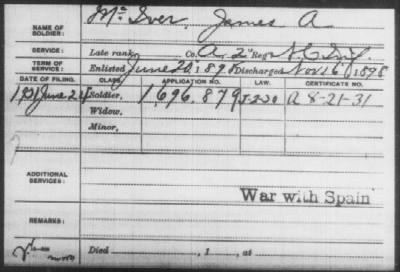 NAME OF SOLDIER: McIver, James A
SERVICE: Late rank, Co. A, 2" Reg't N.C. Inf.
TERM OF SERVICE: Enlisted June 20, 1898 Discharged Nov 16, 1898
DATE OF FILING. CLASS. APPLICATION NO. LAW. CERTIFICATE NO.
1921 June 24 Soldier, 1,696,879 5-2-30 A 8-21-31
Widow,
Minor,
ADDITIONAL SERVICES:
War with Spain
REMARKS:
Died , 1 , at